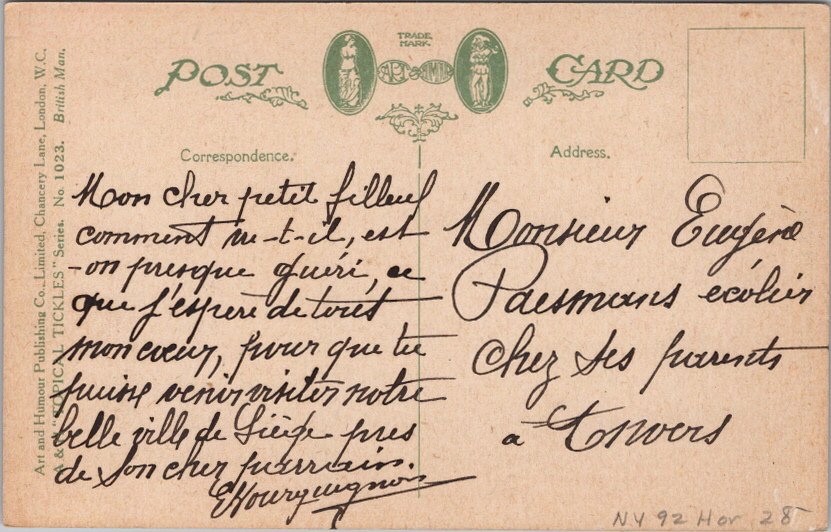 POST CARD
TRADE MARK.
ART & HUMOUR
Correspondence.
Address.
Art and Humour Publishing Co., Limited, Chancery Lane, London, W.C.
A & H "TOPICAL TICKLES" Series. No. 1023. British Man.
Mon cher petit filleul
comment va-t-il, est
-on presque guéri, ce
que j'espère de tout
mon cœur, pour que tu
puisse venir visiter notre
belle ville de Liège pres
de son cher parrain.
Monsieur Eugène
Paesmans écolier
chez ses parents
a Anvers
NY 92 Hor 28